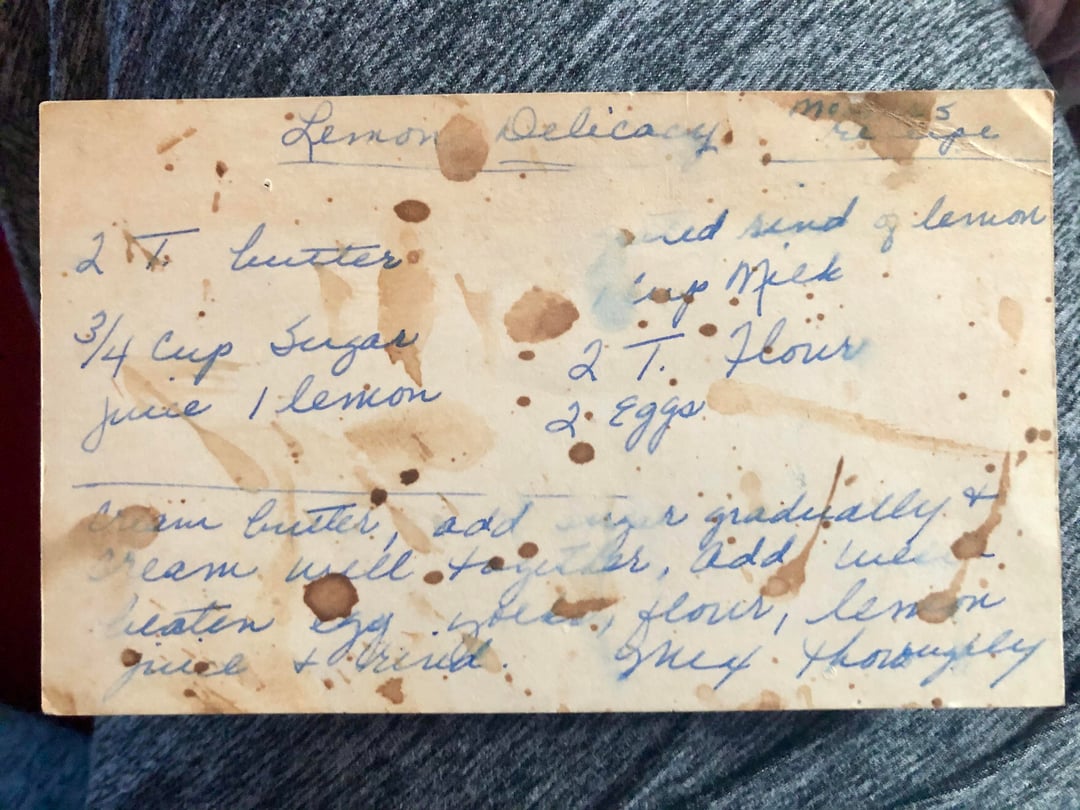 Lemon Delicacy
recipe
2 T. butter
rind of lemon
cup Milk
3/4 Cup Sugar
2 T. Flour
juice 1 lemon
2 Eggs
Cream butter, add sugar gradually +
cream well together, add well
beaten egg yolks, flour, lemon
juice + rind. Mix thoroughly